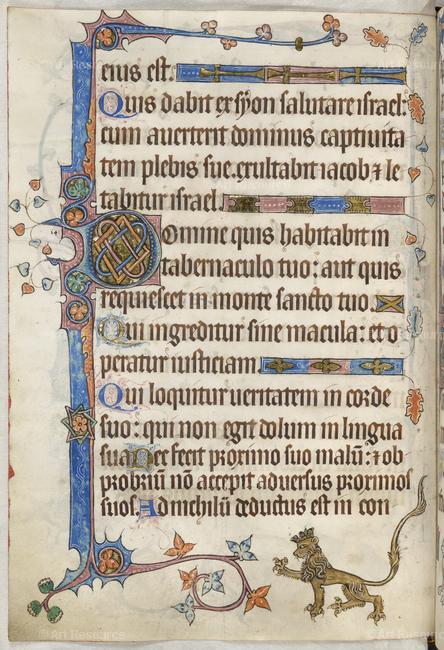 eius est.
Quis dabit ex syon salutare israel:
cum auerterit dominus captiuita
tem plebis sue. exultabit iacob ⁊ le
tabitur israel.
Domine quis habitabit in
tabernaculo tuo: aut quis
requiescet in monte sancto tuo.
Qui ingreditur sine macula: et o
peratur iusticiam.
Qui loquitur ueritatem in corde
suo: qui non egit dolum in lingua
sua Nec fecit proximo suo malū: ⁊ ob
probriū nō accepit aduersus proximos
suos. Ad nichilū deductus est in con
Art Resource